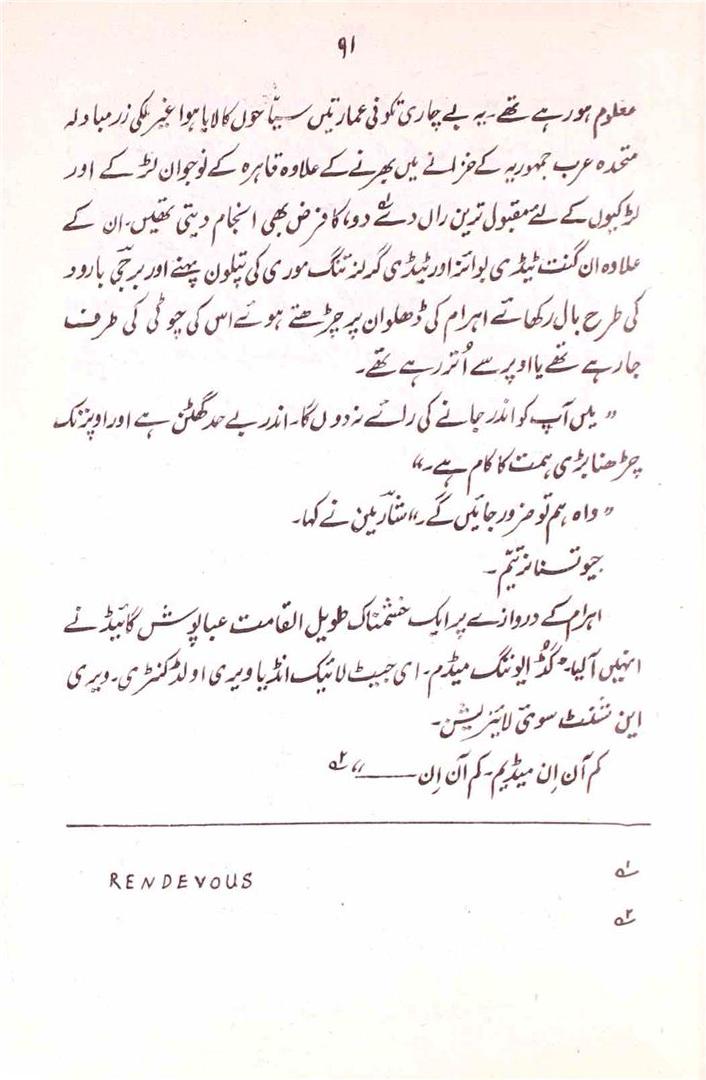 ۹۱
معلوم ہو رہے تھے۔ یہ بے چاری تکونی عمارتیں سیاّحوں کا لایا ہوا غیر ملکی زرِ مبادلہ
متحدہ عرب جمہوریہ کے خزانے میں بھرنے کے علاوہ قاہرہ کے نوجوان لڑکے اور
لڑکیوں کے لئے مقبول ترین راں دے وو، کا فرض بھی انجام دیتی تھیں۔ ان کے
علاوہ ان گنت ٹیڈی بوائز اور ٹیڈی گرلز تنگ موری کی پتلون پہنے اور بارود
کی طرح بال رکھائے اہرام کی ڈھلوان پر چڑھتے ہوئے اس کی چوٹی کی طرف
جا رہے تھے یا اوپر سے اُتر رہے تھے۔
"میں آپ کو اندر جانے کی رائے نہ دوں گا۔ اندر بے حد گھٹن ہے اور اوپر تک
چڑھنا بڑی ہمت کا کام ہے۔"
"واہ ہم تو ضرور جائیں گے۔" نے کہا۔
اہرام کے دروازے پر ایک خشمناک طویل القامت عبا پوش گائیڈ نے
انہیں آ لیا۔ "گُڈ ایوننگ میڈم۔ ای جپٹ لائیک انڈیا ویری اولڈ کنٹری۔ ویری
این شنٹ سوی لائیزیشن۔
کم آن اِن میڈیم۔ کم آن اِن ——" ۲؎
۱؎ RENDEVOUS
۲؎